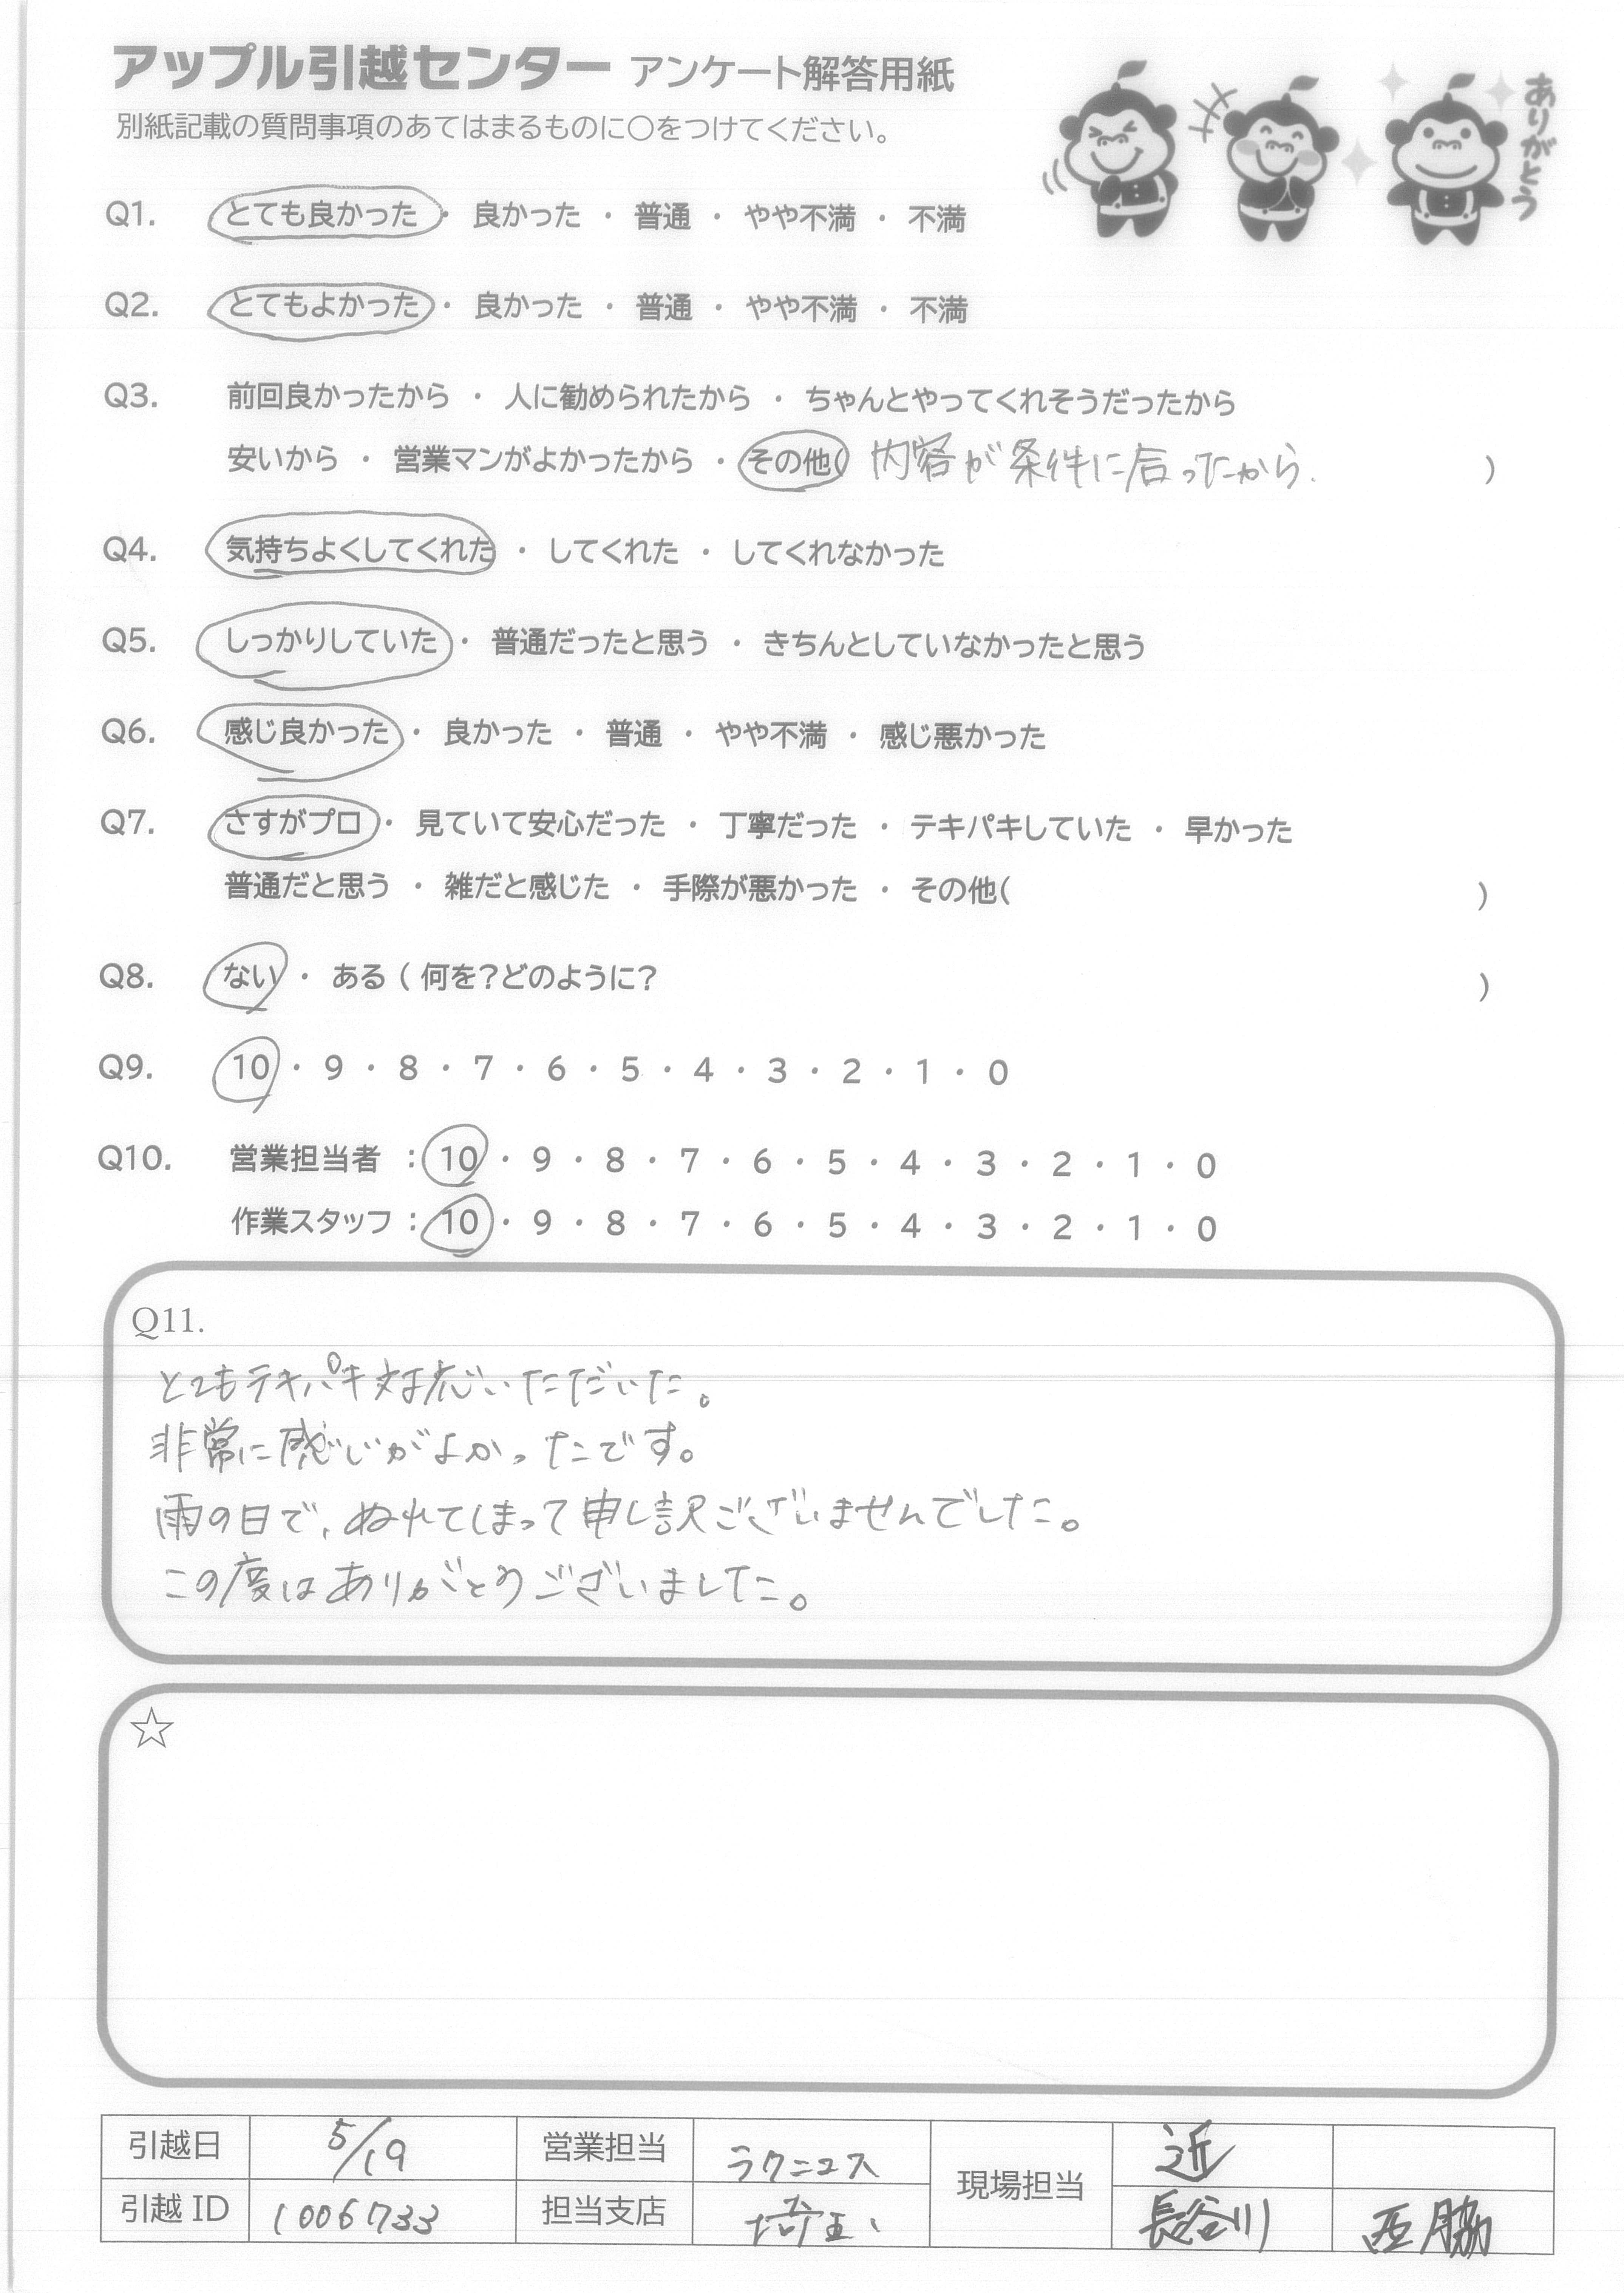 アップル引越センター アンケート解答用紙
別紙記載の質問事項のあてはまるものに○をつけてください。
ありがとう
Q1. とても良かった ・ 良かった ・ 普通 ・ やや不満 ・ 不満
Q2. とてもよかった ・ 良かった ・ 普通 ・ やや不満 ・ 不満
Q3. 前回良かったから ・ 人に勧められたから ・ ちゃんとやってくれそうだったから
安いから ・ 営業マンがよかったから ・ その他( 内容が条件に合ったから. )
Q4. 気持ちよくしてくれた ・ してくれた ・ してくれなかった
Q5. しっかりしていた ・ 普通だったと思う ・ きちんとしていなかったと思う
Q6. 感じ良かった ・ 良かった ・ 普通 ・ やや不満 ・ 感じ悪かった
Q7. さすがプロ ・ 見ていて安心だった ・ 丁寧だった ・ テキパキしていた ・ 早かった
普通だと思う ・ 雑だと感じた ・ 手際が悪かった ・ その他( )
Q8. ない ・ ある ( 何を?どのように? )
Q9. 10 ・ 9 ・ 8 ・ 7 ・ 6 ・ 5 ・ 4 ・ 3 ・ 2 ・ 1 ・ 0
Q10. 営業担当者 : 10 ・ 9 ・ 8 ・ 7 ・ 6 ・ 5 ・ 4 ・ 3 ・ 2 ・ 1 ・ 0
作業スタッフ : 10 ・ 9 ・ 8 ・ 7 ・ 6 ・ 5 ・ 4 ・ 3 ・ 2 ・ 1 ・ 0
Q11.
とてもテキパキ対応いただいた。
非常に感じがよかったです。
雨の日で、ぬれてしまって申し訳ございませんでした。
この度はありがとうございました。
☆
引越日 5/19 営業担当 ラクニュス 現場担当 近
引越 ID 1006733 担当支店 埼玉 長谷川 西脇